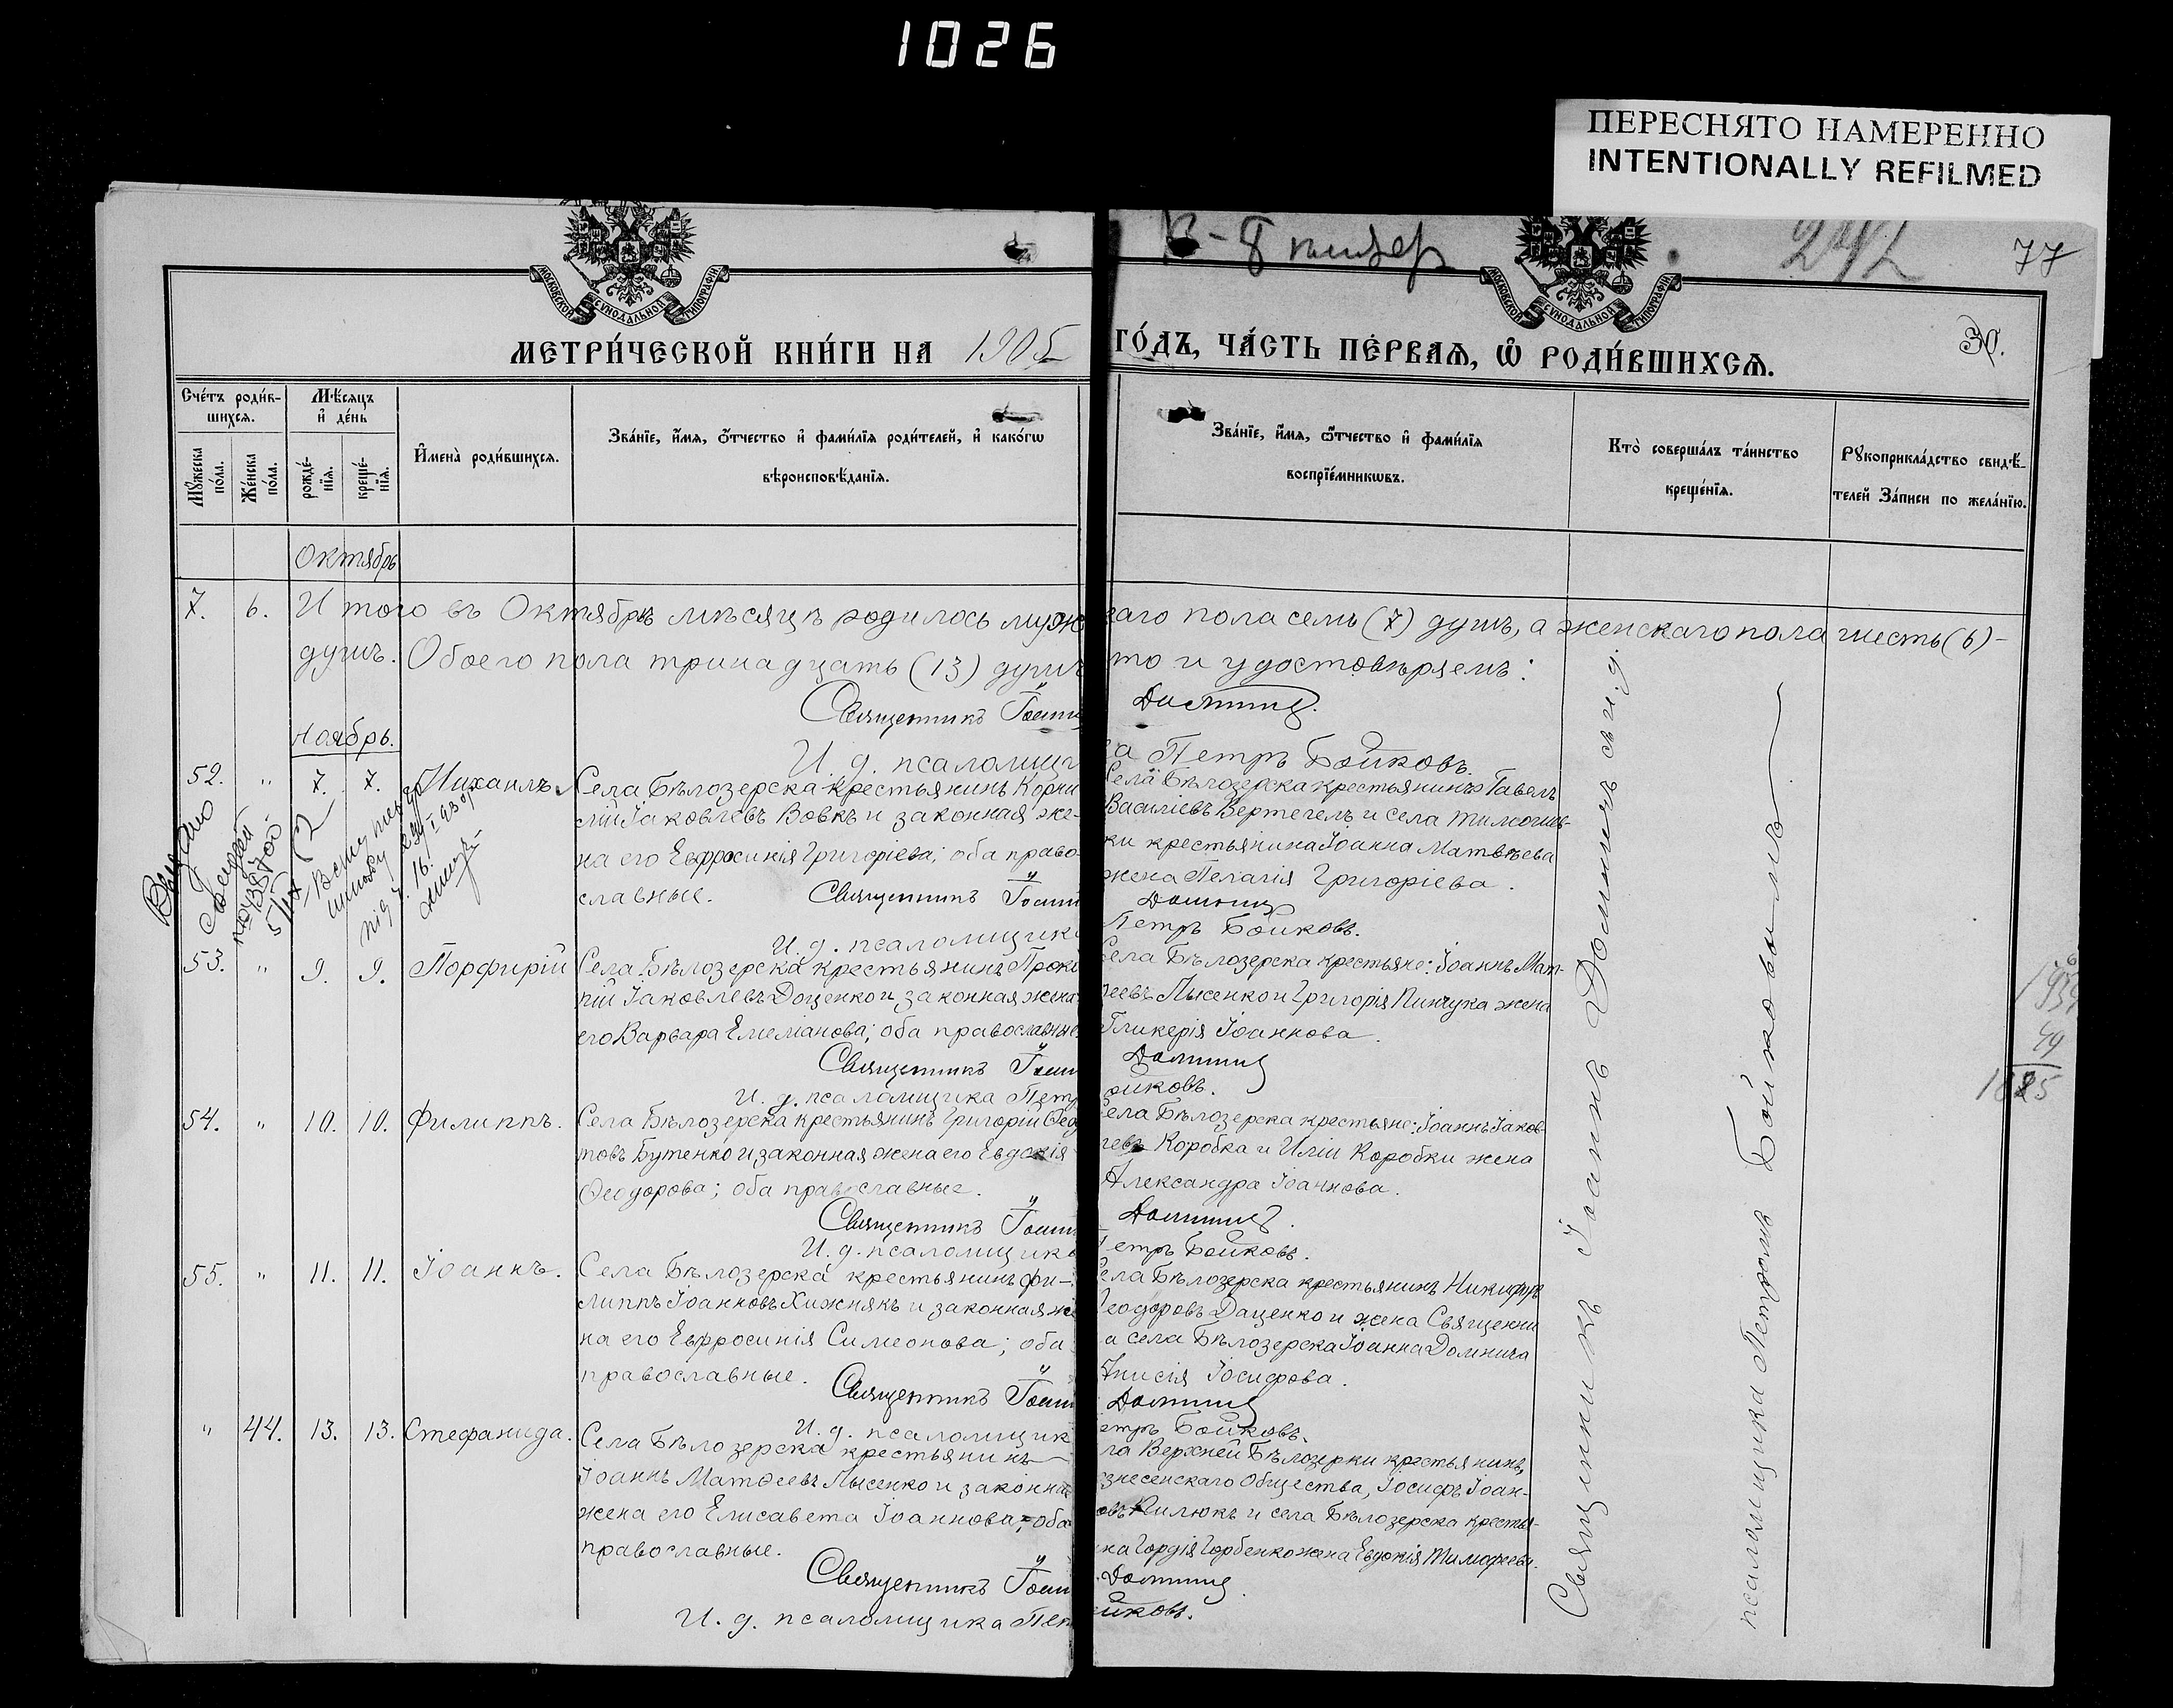 1026
ПЕРЕСНЯТО НАМЕРЕННО
INTENTIONALLY REFILMED
77
30.
МОСКОВСКОЙ СѴНОДАЛЬНОЙ ТИПОГРАФІИ
МОСКОВСКОЙ СѴНОДАЛЬНОЙ ТИПОГРАФІИ
МЕТРИ́ЧЕСКОЙ КНИ́ГИ НА 1905 ГО́ДЪ, ЧА́СТЬ ПЕ́РВАѦ, Ѡ҆ РОДИ́ВШИХСѦ.
Сче́тъ роди́в-
шихсѧ.
Мѣ́сѧцъ
и҆ де́нь
Мꙋ́жеска по́ла.
Же́нска по́ла.
рожде́-нїѧ.
креще́-нїѧ.
И҆мена̀ роди́вшихсѧ.
Зва́нїе, и҆́мѧ, ѻ҆́тчество и҆ фами́лїѧ роди́телей, и҆ како́гѡ
вѣроисповѣ́данїѧ.
Зва́нїе, и҆́мѧ, ѻ҆́тчество и҆ фами́лїѧ
воспрїе́мникѡвъ.
Кто̀ соверша́лъ та́инство
креще́нїѧ.
Рꙋкоприкла́дство свидѣ́-
телей За́писи по жела́нїю.
Октябрь
7. 6. И того въ Октябрѣ мѣсяцѣ родилось муж каго пола семь (7) душъ, а женскаго пола шесть (6) –
душъ. Обоего пола тринадцать (13) душъ что и удостовѣряемъ:
Священникъ Іоанн Домнич.
Ноябрь.
И. д. псаломщика Петръ Бойковъ.
52. " 7. 7. Михаилъ.
Села Бѣлозерска крестьянинъ Корни
лій Іаковлевъ Вовкъ и законная же-
на его Евфросинія Григоріева; оба право-
славные.
Священникъ Іоанн
И. д. псаломщика
Села Бѣлозерска крестьянинъ Павелъ
Василіевъ Вертегелъ и села Тимошев-
ки крестьянина Іоанна Матвѣева
жена Пелагія Григоріева.
Домнич
Петръ Бойковъ.
53. " 9. 9. Порфирій
Села Бѣлозерска крестьянинъ Проко
пій Іаковлевъ Доценко и законная жена
его Варвара Емеліанова; оба православные
Священникъ Іоанн
И. д. псаломщика Петр
Села Бѣлозерска крестьяне: Іоаннъ Мат-
ѳеевъ Лысенко и Григорія Пинчука жена
Гликерія Іоаннова.
Домнич
ойковъ.
54. " 10. 10. Филиппъ.
Села Бѣлозерска крестьянинъ Григорій Ѳедо
товъ Бутенко и законная жена его Евдокія
Ѳеодорова; оба православные.
Священникъ Іоанн
И. д. псаломщика
Села Бѣлозерска крестьяне: Іоаннъ Іаков-
левъ Коробка и Иліи Коробки жена
Александра Іоаннова.
Домнич.
Петръ Бойковъ.
55. " 11. 11. Іоаннъ.
Села Бѣлозерска крестьянинъ Фи-
липпъ Іоанновъ Хижнякъ и законная же
на его Евфросинія Симеонова; оба
православные.
Священникъ Іоанн
И. д. псаломщик
Села Бѣлозерска крестьянинъ Никифоръ
Ѳеодоровъ Даценко и жена Священни
ка села Бѣлозерска Іоанна Домнича
Анисія Іосифова.
Домнич
етръ Бойковъ.
" 44. 13. 13. Стефанида.
Села Бѣлозерска крестьянинъ
Іоаннъ Матѳеевъ Лысенко и законная
жена его Елисавета Іоаннова; оба
православные.
Священникъ Іоанн
И. д. псаломщика Пет
ла Верхней Бѣлозерки крестьянинъ,
знесенскаго Общества, Іосифъ Іоан-
овъ Килюкъ и села Бѣлозерска крестья-
на Гордія Горбенко жена Евдокія Тимофеева.
Домнич
йковъ.
Священникъ Іоаннъ Домничъ съ и. д.
псаломщика Петромъ Бойковымъ
49